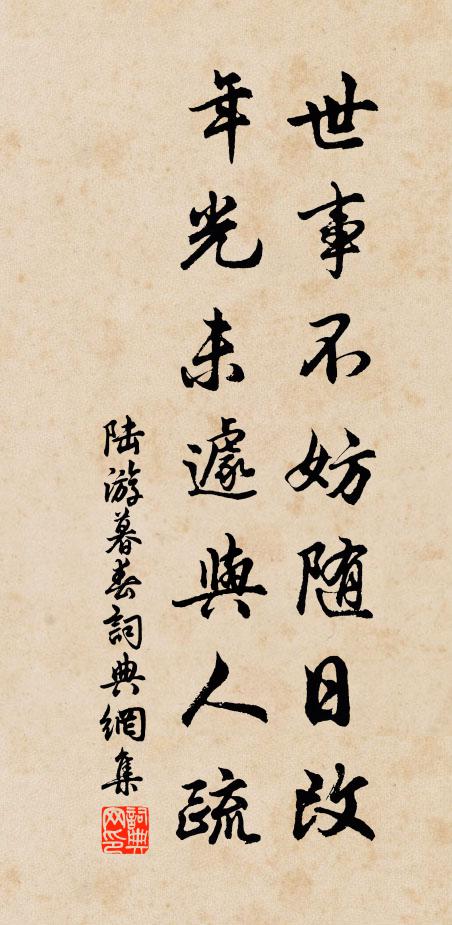 世事不妨随日改
年光未遽與人疏
陆游暮春詞典網集
詞典网印